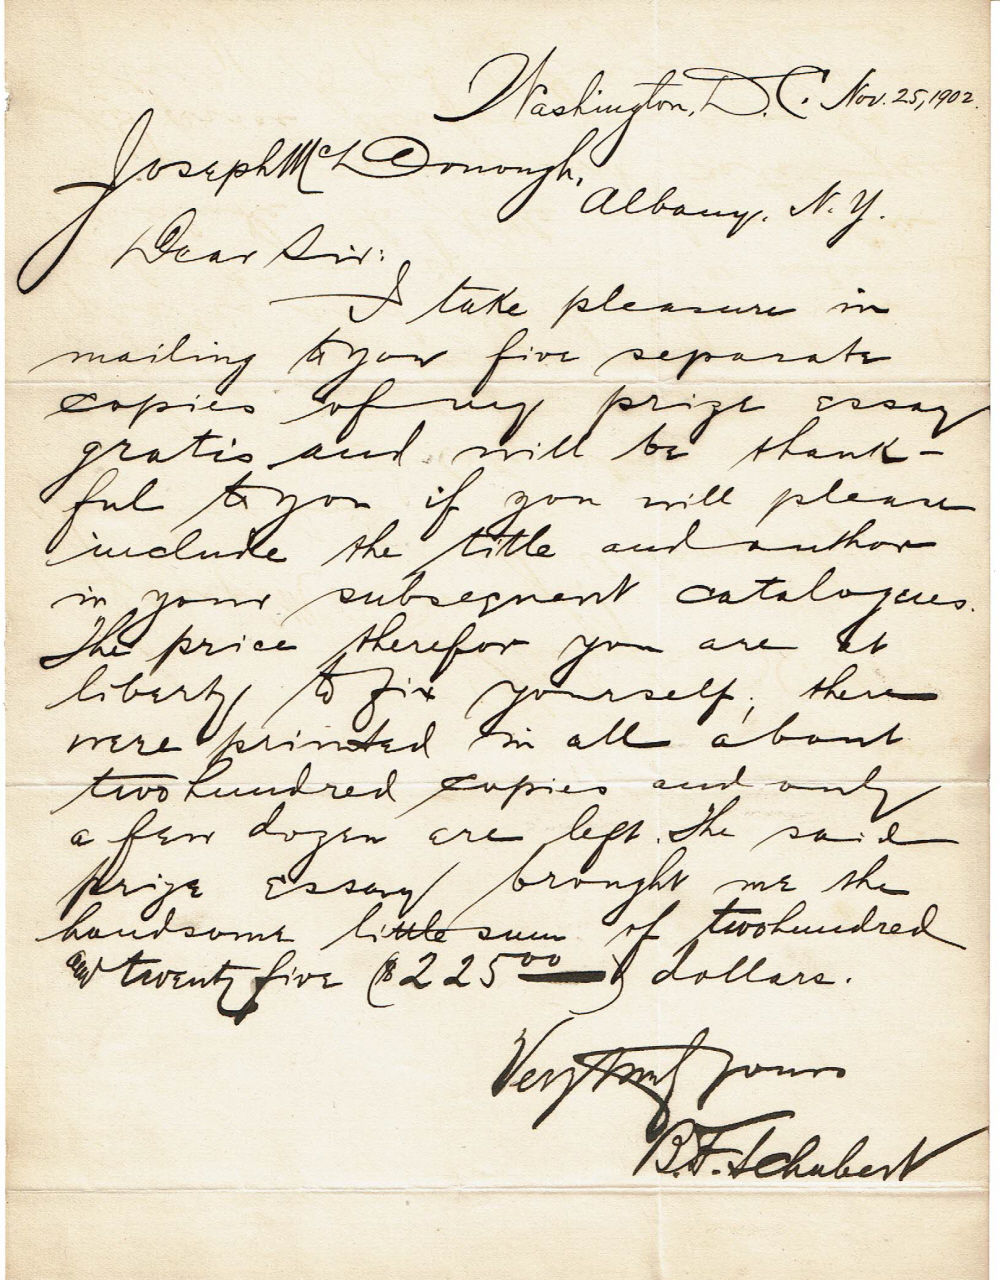 Washington, D.C. Nov. 25, 1902.
Joseph McDonough,
Albany, N.Y.
Dear Sir:
I take pleasure in
mailing to you five separate
copies of my prize essay
gratis and will be thank-
ful to you if you will please
include the title and author
in your subsequent catalogues.
The price therefor you are at
liberty to fix yourself; there
were printed in all about
two hundred copies and only
a few dozen are left. The said
prize essay brought me the
handsome little sum of two hundred
and twenty five ($225 00) dollars.
Very truly yours
B.F. Schubert